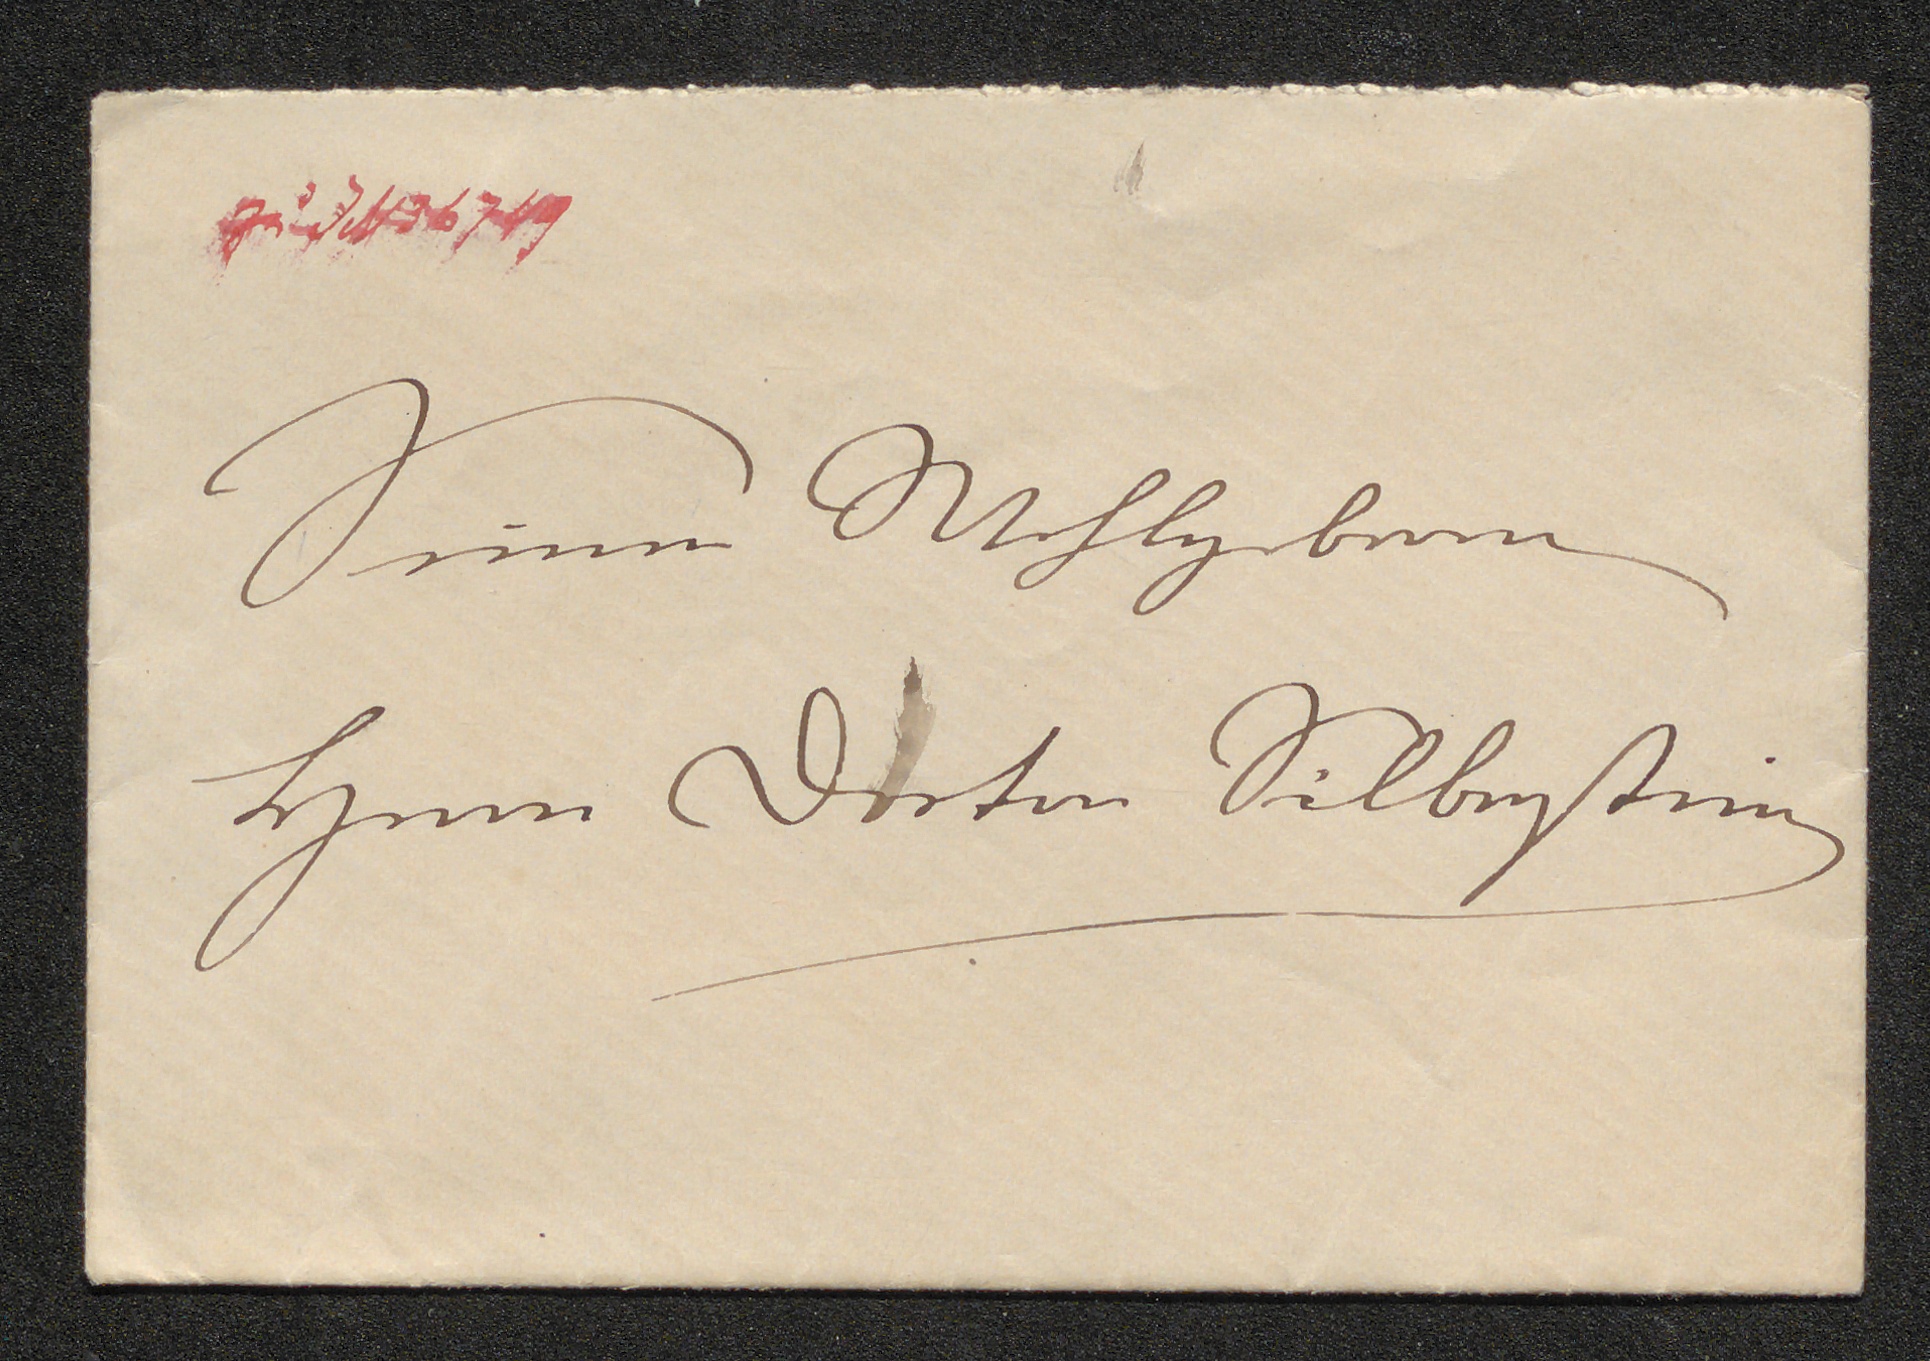 Seiner Wohlgeboren
Herrn Doctor Silberstein